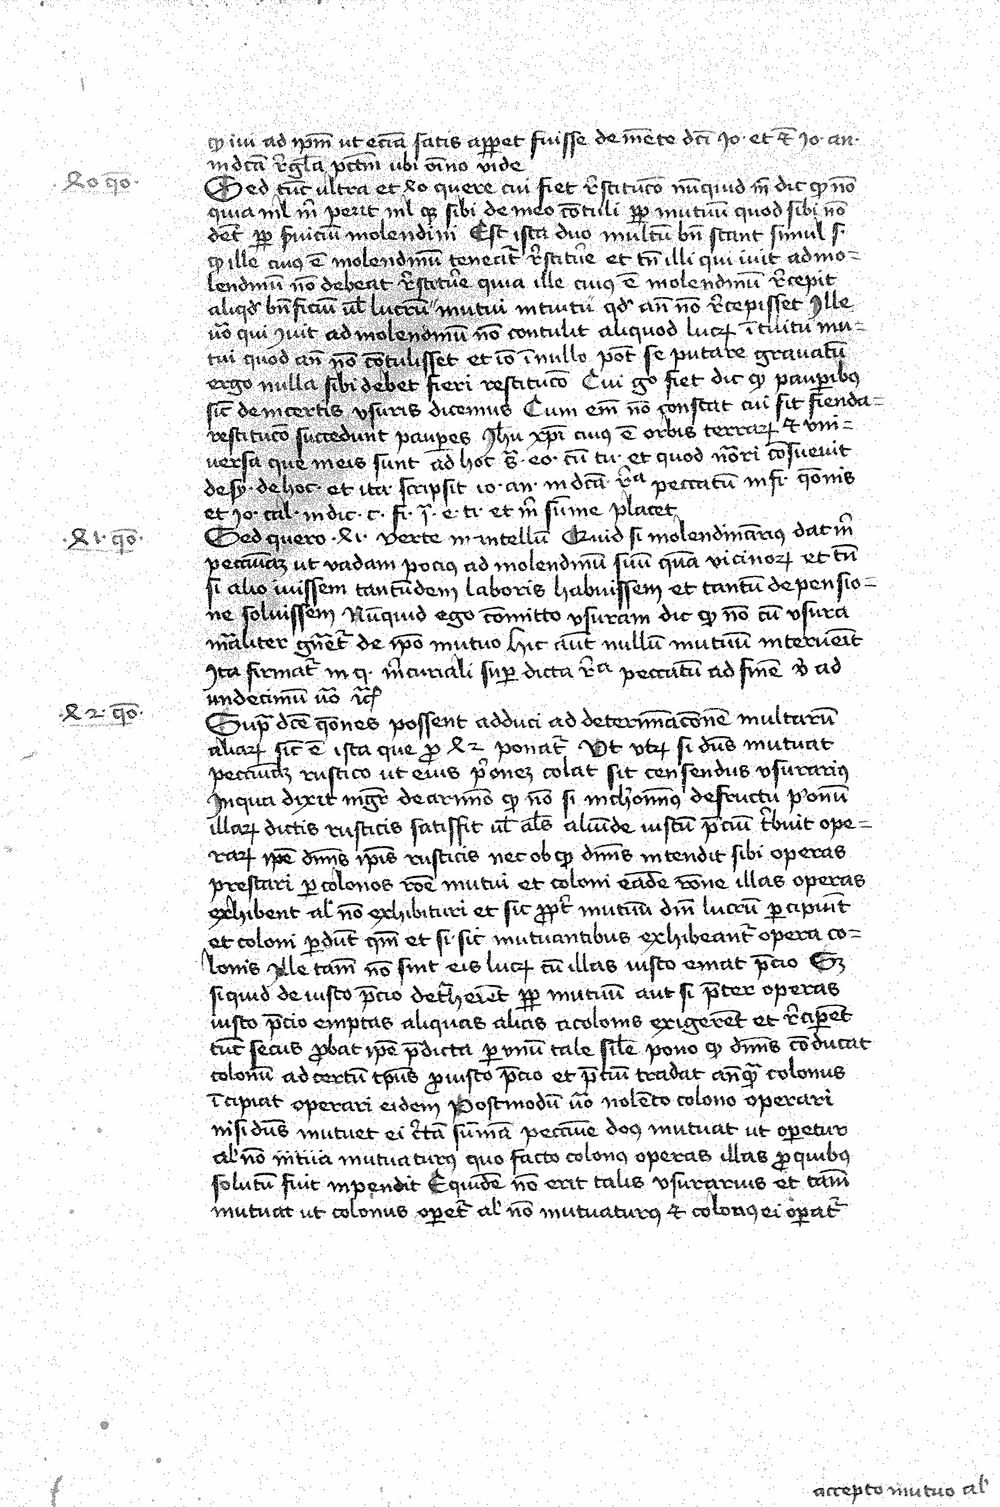 qͥ iui ad ip̄m ut ecia satis app̄et fuisse de mēte dc̄i Jo. et Jo. an.
in dcā r̄gl̄a pcc̄tm ubi oīno vide
40 qō.
Sed tūc ultra et 40 quere cui fiet r̄stitucō nūnquid m̄ dic qͥ nō
quia nil m̄ perit nil sibi de meo cōtuli ꝓp mutuū quod sibi nō
det̄ ꝓp ẜuiciū molendini Est ista duo multū bn̄ stant simul s.
qͥ ille cuiꝰ ē molendinū teneat̄ r̄stituẽ et tn̄ illi qui iuit ad mo=
lendinū nō debeat r̄stituẽ quia ille cuiꝰ ē molendinū r̄cepit
aliqd̕ bn̄ficiū ul̕ lucrū mutui intuitu qd̕ an̄ nō r̄cepisset Ille
uō qui iuit ad molendinū nō contulit aliquod lucꝝ ītuitu mu=
tui quod an̄ nō cōtulisset et iō ī nullo pōt se putare grauatū
ergo nulla sibi debet fieri restitucō Cui go fiet dic qͥ pauꝑibꝰ
sic̄ de incertis vsuris dicemus Cum em̄ nō constat cui sit fienda=
restitucō succedunt pauꝑes Jh̄u xp̄i cuiꝰ ē orbis terraꝝ ⁊ vni=
uersa que in eis sunt ad hoc s̄. eo. cū tu. et quod nōri cōsueuit
de sy. de hoc. et ita scripsit io. an. in dcā r̄ᵃ peccatū in fi. qōnis
et Jo. cal. in dic. c. fi. j̄. e. ti. et m̄ sūme placet
.41. qō.
Sed quero .41. verte intellm̄ Quid si molendinarius dat m̄
pecuniā ut vadam pociꝰ ad molendinū suū quā vicinoꝝ et tn̄
si alio iuissem tantūdem laboris habuissem et tantū de pensio=
ne soluissem Nūquid ego cōmitto vsuram dic qͥ nō cū vsura
māliter gn̄et̄ de ip̄o mutuo hic aut̄ nullū mutuū interuenit
Ita firmat̄ in q. m̄curiali suꝑ dicta r̄ᵃ peccatū ad finē v̄ ad
undecimū uō
.42. qō.
Supͣ dc̄e qōnes possent adduci ad determinacōnē multarū
aliaꝝ sic̄ ē ista que ꝓ 42 ponat̄ Vt vtꝝ si dn̄s mutuat
pecuniā rustico ut eius colat sit censendus vsurariꝰ
In qua dixit mgr̄ de arimīo qͥ nō si de fructu
illaꝝ dictis rusticis satisfit ul̕ al̄s aliūde iustū p̄ciū t̄buit ope=
raꝝ ip̄e dn̄s ip̄is rusticis nec ob qͥ dn̄s intendit sibi operas
prestari ꝑ colonos rōe mutui et coloni eādē rōne illas operas
exhibent al̕ nō exhibituri et sic ꝓpt̄ mutuū dn̄i lucrū ꝑcipiūt
et coloni ꝑdūt qm̄ et si sic mutuantibus exhibeant̄ opera co=
lonis ille tam̄ nō sint eis lucꝝ cū illas iusto emat p̄cio Sꝫ
si quid de iusto p̄cio det̄heret̄ ꝓp mutuū aut si p̄ter operas
iusto p̄cio emptas aliquas alias a colonis exigerēt et r̄ciꝑēt
tūc secus ꝓbat ip̄e p̄dicta ꝑ vnū tale sil̄e pono qͥ dn̄s cōducat
colonū ad certū tp̄us ꝓ iusto p̄cio et p̄ciū tradat an̄qͣ colonus
īcipiat operari eidem Postmodū uō nolēte colono operari
nisi dn̄s mutuet ei c̄tā sūmā pecunie dn̄s mutuat ut opetur
al̕ nō mutuaturꝰ quo facto colonꝰ operas illas ꝓ quibꝰ
solutū fuit inpendit Equidē nō erit talis vsurarius et tam̄
mutuat ut colonus oꝑet̄ al̕ nō mutuaturꝰ ⁊ colonꝰ ei oꝑat̄
accepto mutuo al̕